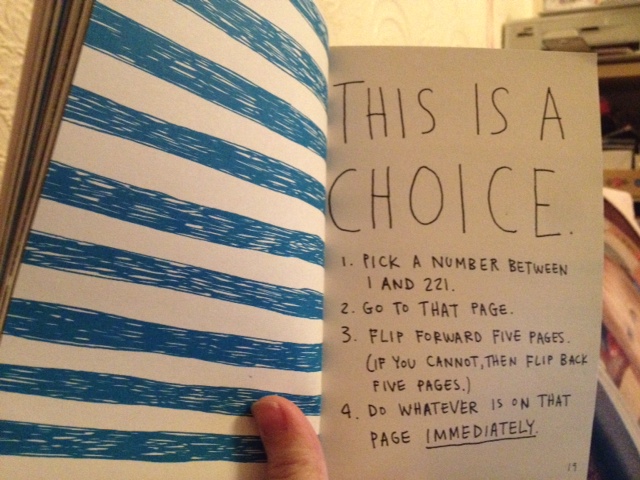 THIS IS A
CHOICE.
1. PICK A NUMBER BETWEEN
1 AND 221.
2. GO TO THAT PAGE.
3. FLIP FORWARD FIVE PAGES.
(IF YOU CANNOT, THEN FLIP BACK
FIVE PAGES.)
4. DO WHATEVER IS ON THAT
PAGE IMMEDIATELY.